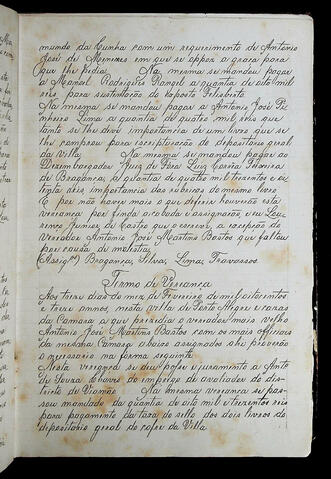 mundo da Cunha com um requerimento de Antonio
José de Menezes em que se oppoz a graça para
que lhe pedia. Na mesma se mandou pagar
a Manoel Rodrigues Rangel a quantia de oito mil
reis para sustentação do exposto Felisberto
Na mesma se mandou pagar a Antonio José Pi
nheiro Lima a quantia de quatro mil reis que
tanto se lhe deve importancia de um livro que se
lhe comprou para escripturação do depositario geral
da villa. Na mesma se mandou pagar ao
Dezembargador Juiz de Fóra Luiz Corrêa Teixeira
de Bragança, a quantia de quatro mil trezentos e
tenta reis importancia das rubricas do mesmo livro
E por não haver mais o que deferir houverão esta
vereança por finda acabada e assignarão eu Lou
renço Junior de Castro que o escrevi, a excepção do
Vereador Antonio José Martins Bastos que faltou
por causa de molestia
(Assigos) Bragança, Silva, Lima, Travassos
Termo de Vereança
Aos treze dias do mez de Fevereiro de mil oitocentos
e treze annos, nesta villa de Porto Alegre e cazas
da Camara a que prezidio o vereador mais velho
Antonio José Martins Bastos com os mais officiaes
da mesma Camara abaixo assignados se proverão
o necessario na forma seguinte
Nesta vereança se deu posse e juramento a Anto
de Souza do emprego de avaliador do dis
tricto de Viamão Na mesma vereança se pas
sou mandado da quantia de oito mil e trezentos reis
para pagamento da taxa do sello dos dois livros do
depositario geral do cofre da Villa